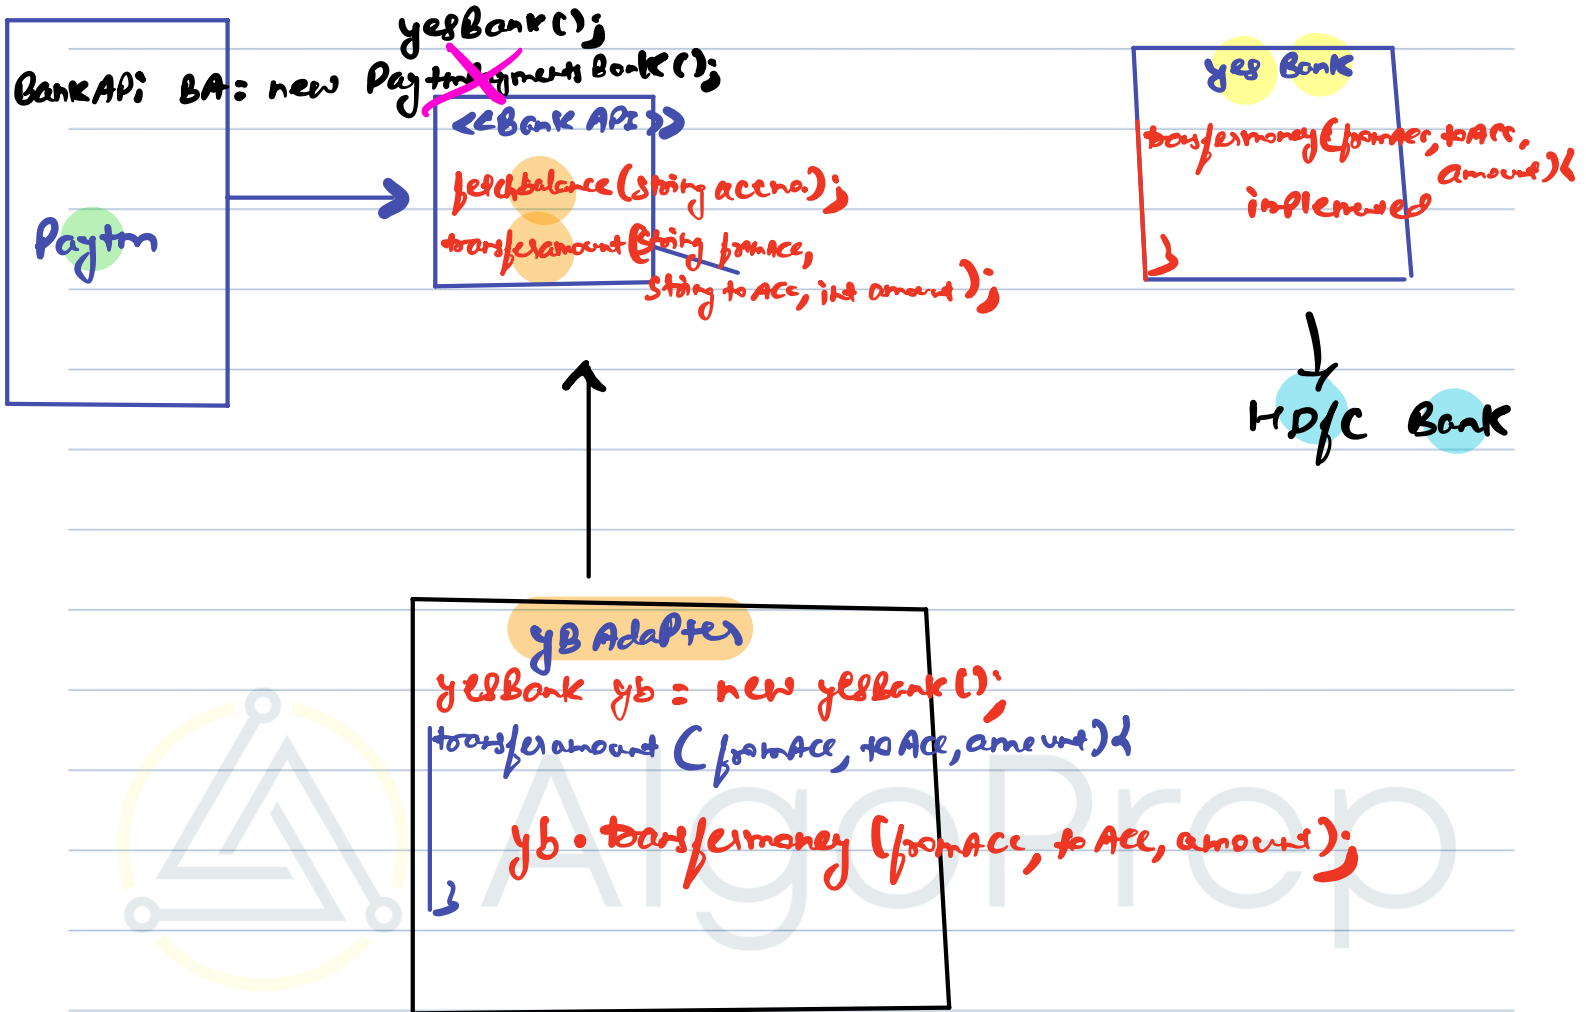 yesBank();
BankAPi BA = new PaytmPaymentsBank();
<<Bank API>>
fetchbalance(string accno.);
transferamount(string fromAcc,
string to Acc, int amount);
Paytm
yes Bank
transfermoney(fromAcc, toAcc,
amount){
implemented
}
HDfC Bank
yB AdaPter
yesBank yb = new yesBank();
transferamount (fromAcc, to Acc, amount){
yb.transfermoney (fromAcc, to Acc, amount);
}
AlgoPrep